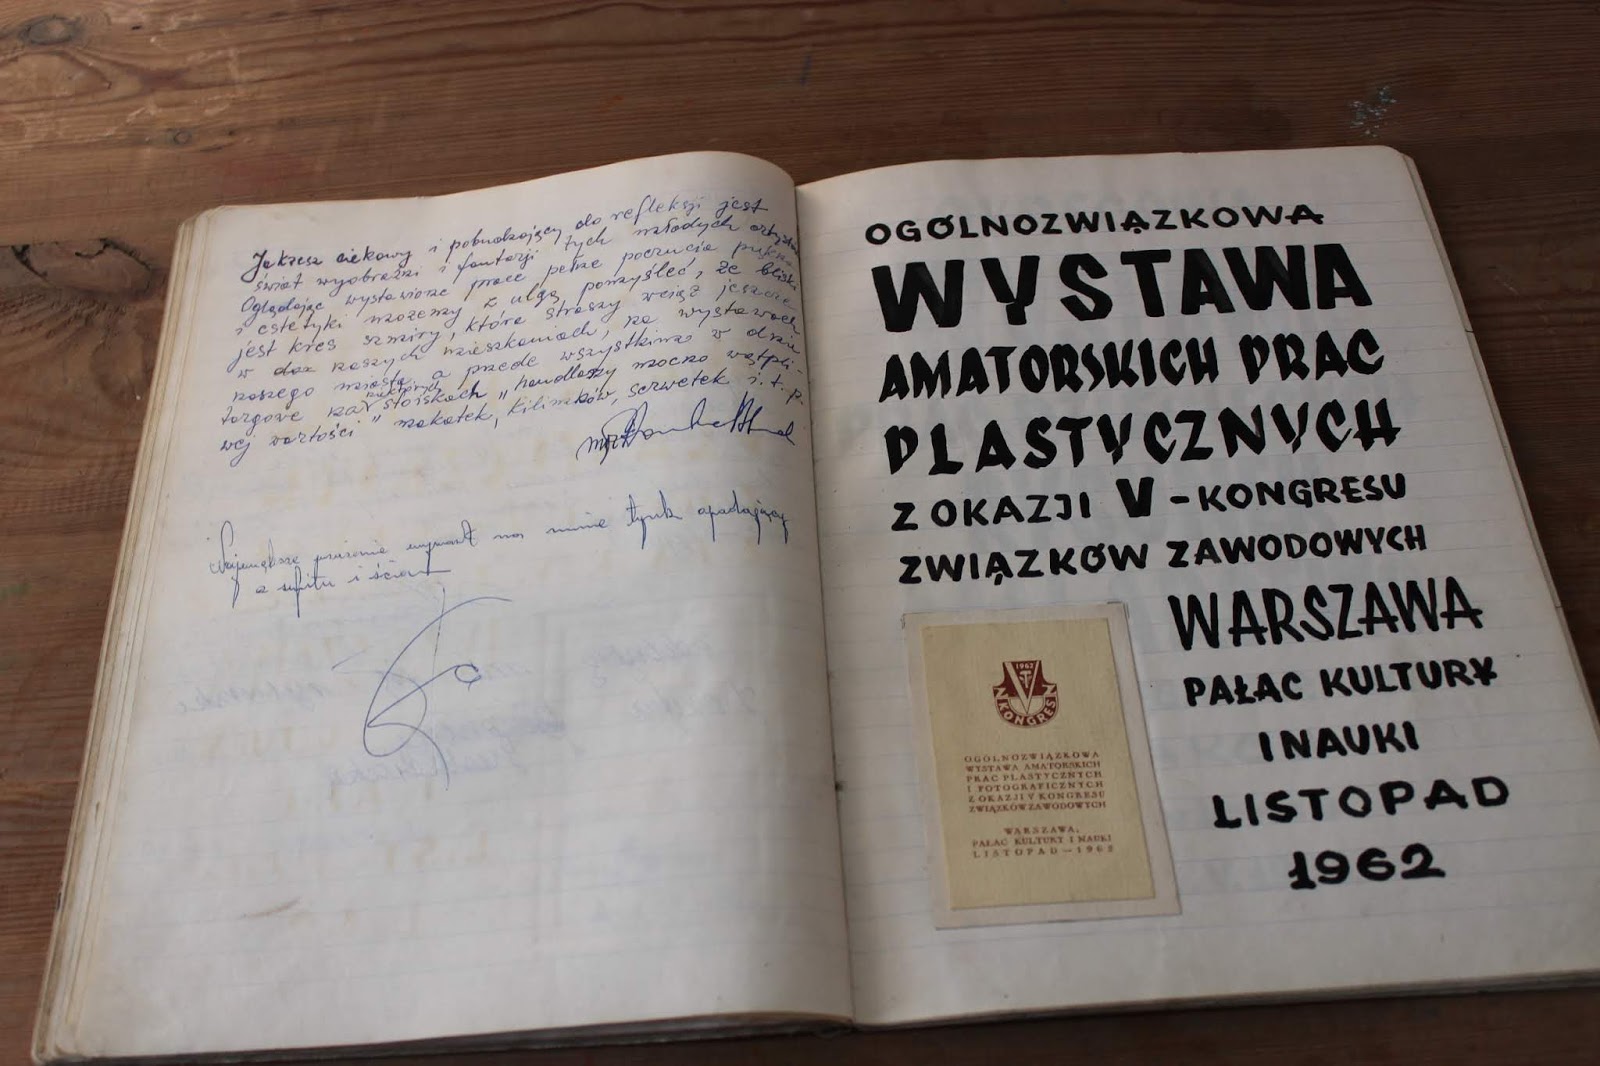 Jakżesz ciekawy i pobudzający do refleksji jest
świat wyobraźni i fantazji tych młodych artystów
Oglądając wystawione prace pełne poczucia piękna
i estetyki możemy z ulgą pomyśleć, że bliski
jest kres szmiry, które straszy wciąż jeszcze
w naszych mieszkaniach, na wystawach
naszego miasta, a przede wszystkim w dni
targowe na niektórych stoiskach "handlarzy mocno wątpli-
wej wartości" makatek, kilimków, serwetek i.t.p.
mgr
Największe wrażenie wywarł na mnie tynk opadający
z sufitu i ścian
OGÓLNOZWIĄZKOWA
WYSTAWA
AMATORSKICH PRAC
PLASTYCZNYCH
Z OKAZJI V - KONGRESU
ZWIĄZKÓW ZAWODOWYCH
WARSZAWA
PAŁAC KULTURY
I NAUKI
LISTOPAD
1962
1962
V
KONGRES
OGÓLNOZWIĄZKOWA
WYSTAWA AMATORSKICH
PRAC PLASTYCZNYCH
I FOTOGRAFICZNYCH
Z OKAZJI V KONGRESU
ZWIĄZKÓW ZAWODOWYCH
WARSZAWA,
PAŁAC KULTURY I NAUKI
LISTOPAD — 1962